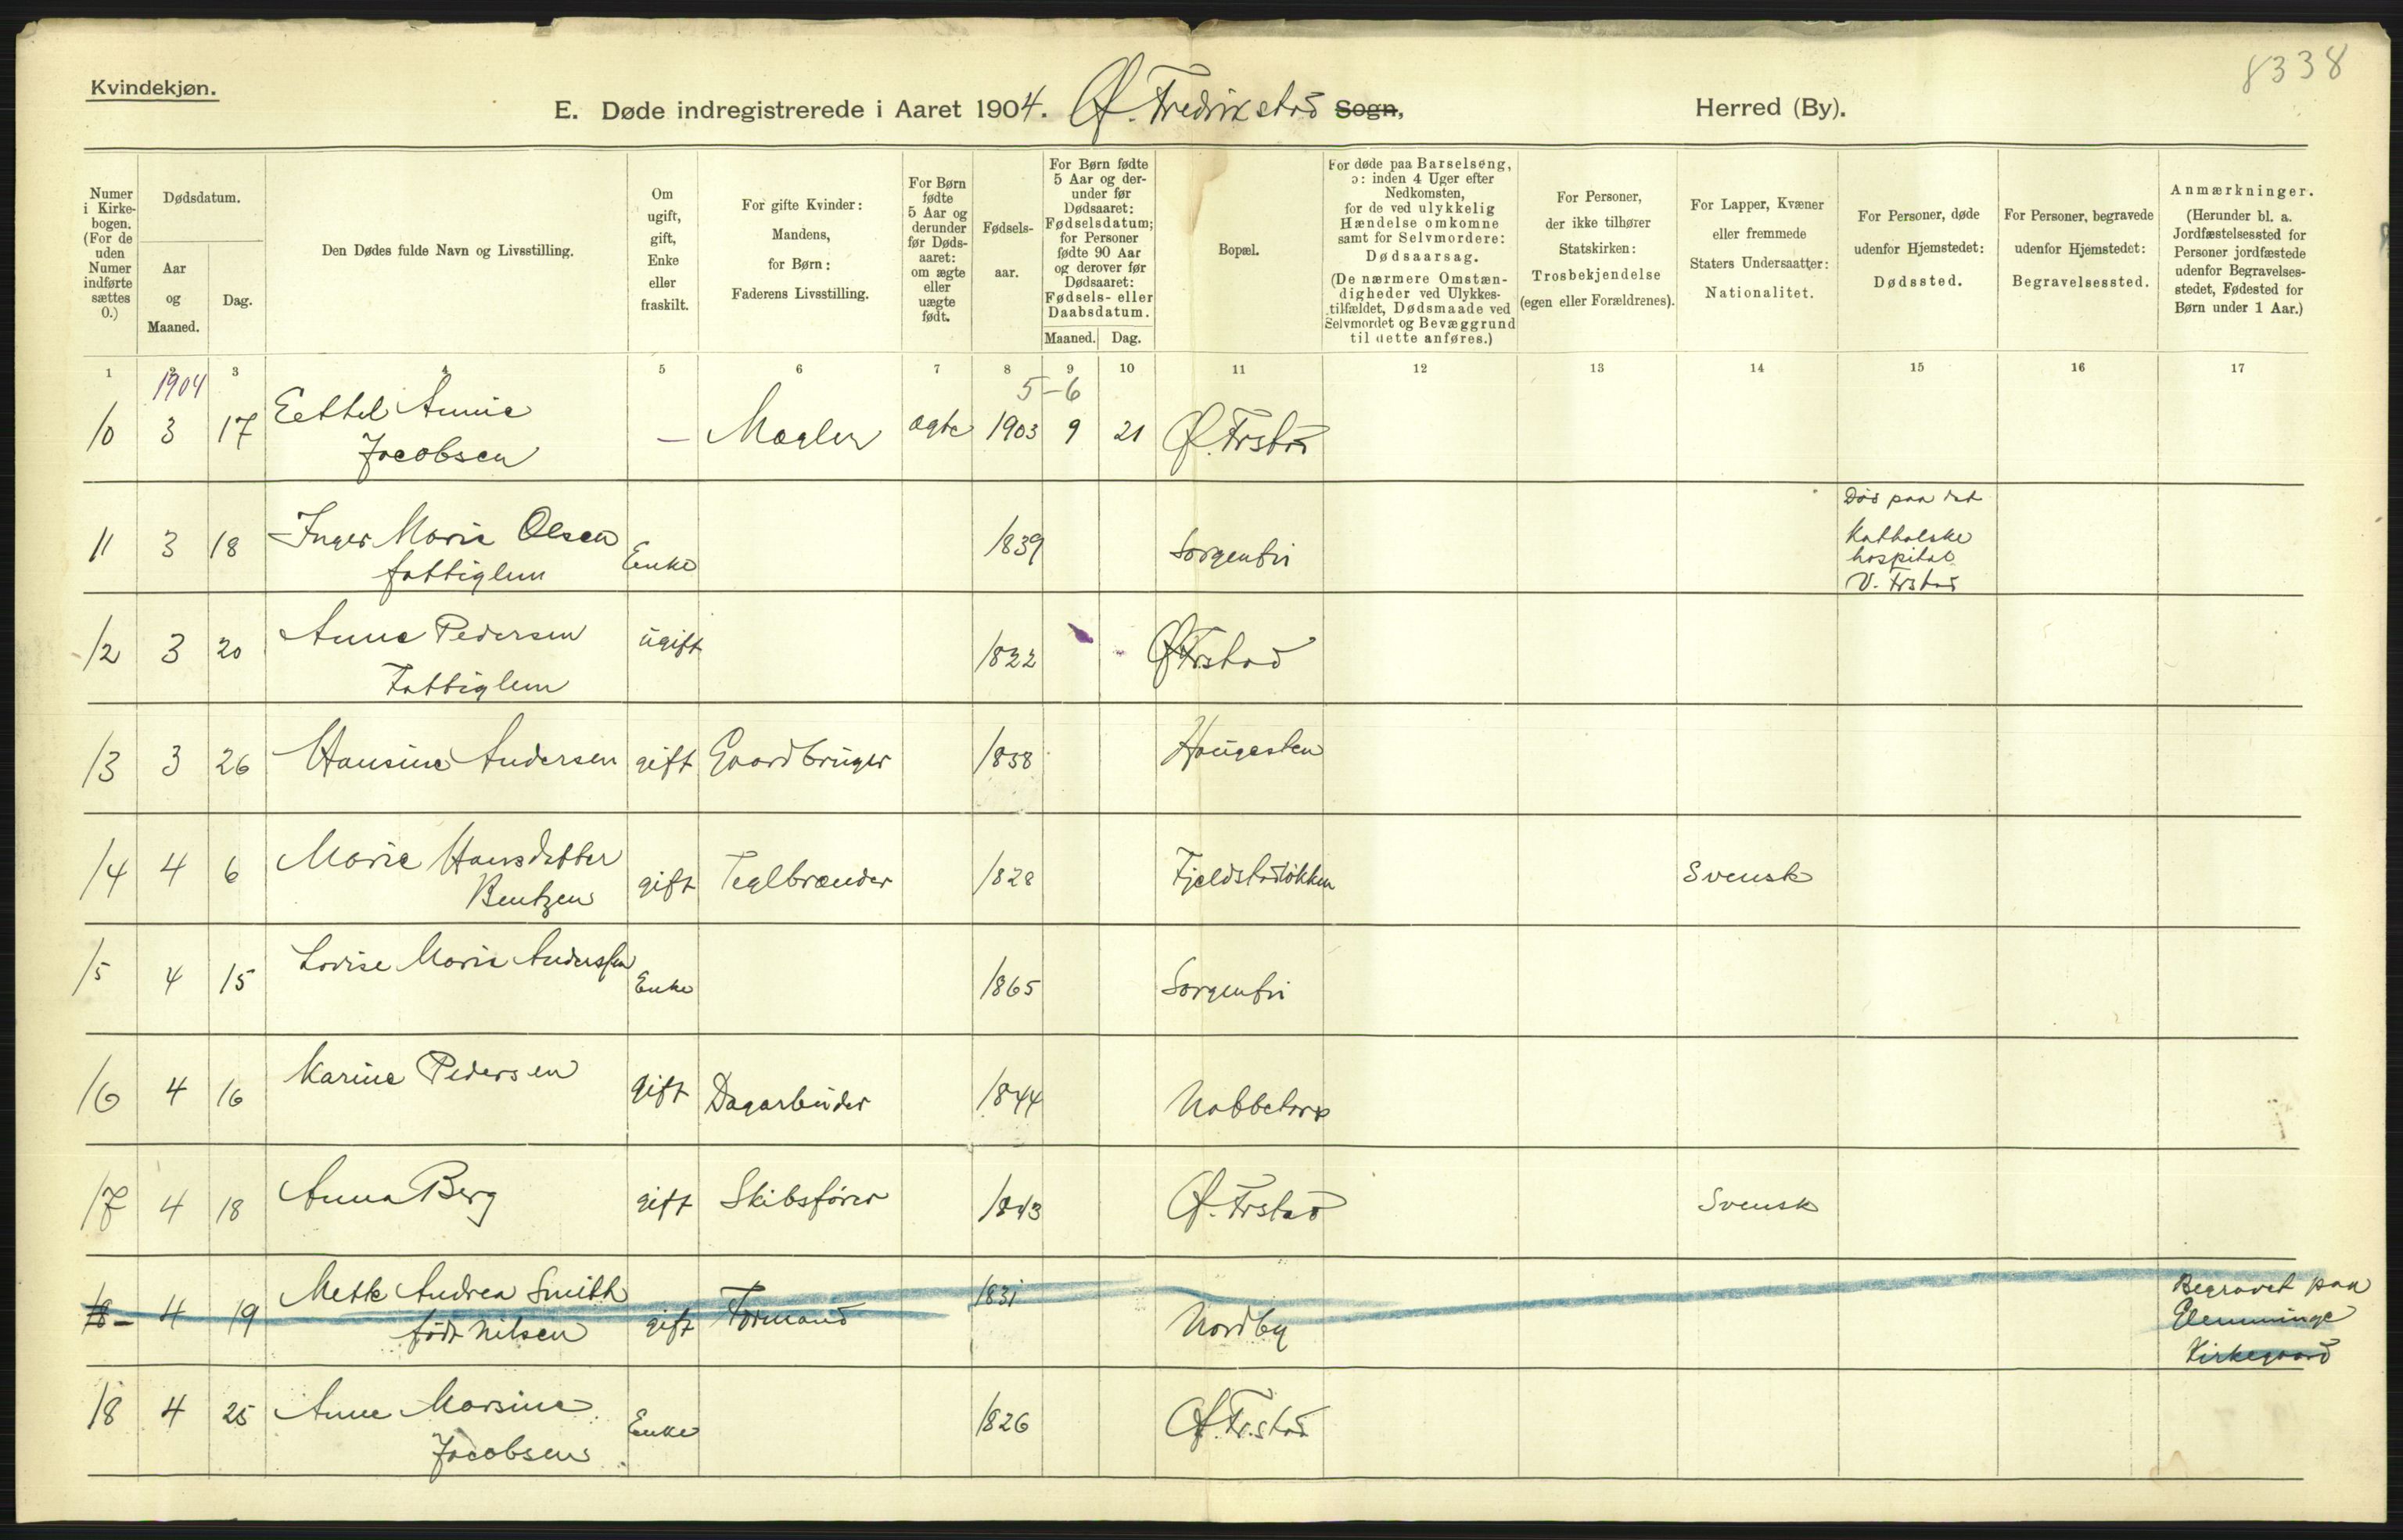 8338
Kvindekjøn.
E. Døde indregistrerede i Aaret 1904. Ø. Fredrikstad Sogn, Herred (By).
Numer i Kirkebogen. (For de uden Numer indførte sættes 0.)
Dødsdatum.
Aar og Maaned.
Dag.
Den Dødes fulde Navn og Livsstilling.
Om ugift, gift, Enke eller fraskilt.
For gifte Kvinder: Mandens, for Børn: Faderens Livsstilling.
For Børn fødte 5 Aar og derunder før Dødsaaret: om ægte eller uægte født.
Fødselsaar.
For Børn fødte 5 Aar og derunder før Dødsaaret: Fødselsdatum; for Personer fødte 90 Aar og derover før Dødsaaret: Fødsels- eller Daabsdatum.
Maaned. Dag.
Bopæl.
For døde paa Barselseng, ɔ: inden 4 Uger efter Nedkomsten, for de ved ulykkelig Hændelse omkomne samt for Selvmordere: Dødsaarsag. (De nærmere Omstændigheder ved Ulykkestilfældet, Dødsmaade ved Selvmordet og Bevæggrund til dette anføres.)
For Personer, der ikke tilhører Statskirken: Trosbekjendelse (egen eller Forældrenes).
For Lapper, Kvæner eller fremmede Staters Undersaatter: Nationalitet.
For Personer, døde udenfor Hjemstedet: Dødssted.
For Personer, begravede udenfor Hjemstedet: Begravelsessted.
Anmærkninger. (Herunder bl. a. Jordfæstelsessted for Personer jordfæstede udenfor Begravelsesstedet, Fødested for Børn under 1 Aar.)
1 2 3 4 5 6 7 8 9 10 11 12 13 14 15 16 17
1904
5-6
10 3 17 Eethel Annie Jacobsen – Mægler ægte 1903 9 21 Ø. Frstad
11 3 18 Inger Marie Olsen fattiglem Enke 1839 Sorgenfri Død paa det Katholske hospital V. Frstad
12 3 20 Anne Pedersen Fattiglem ugift 1822 Ø Frstad
13 3 26 Hansine Andersen gift Gaardbruger 1838 Haugesten
14 4 6 Marie Hansdatter Bentzen gift Teglbrænder 1828 Fjeldstadløkken Svensk
15 4 15 Lovise Marie Anderssen Enke 1865 Sorgenfri
16 4 16 Karine Pedersen gift Dagarbeider 1844 Nabbetorp
17 4 18 Anna Berg gift Skibsfører 1843 Ø. Frstad Svensk
18 – 4 19 Mette Andrea Smith født Nilsen gift Formand 1831 Nordby Begravet paa Glemminge Kirkegaard
18 4 25 Anne Marsine Jacobsen Enke 1826 Ø. Fr.stad